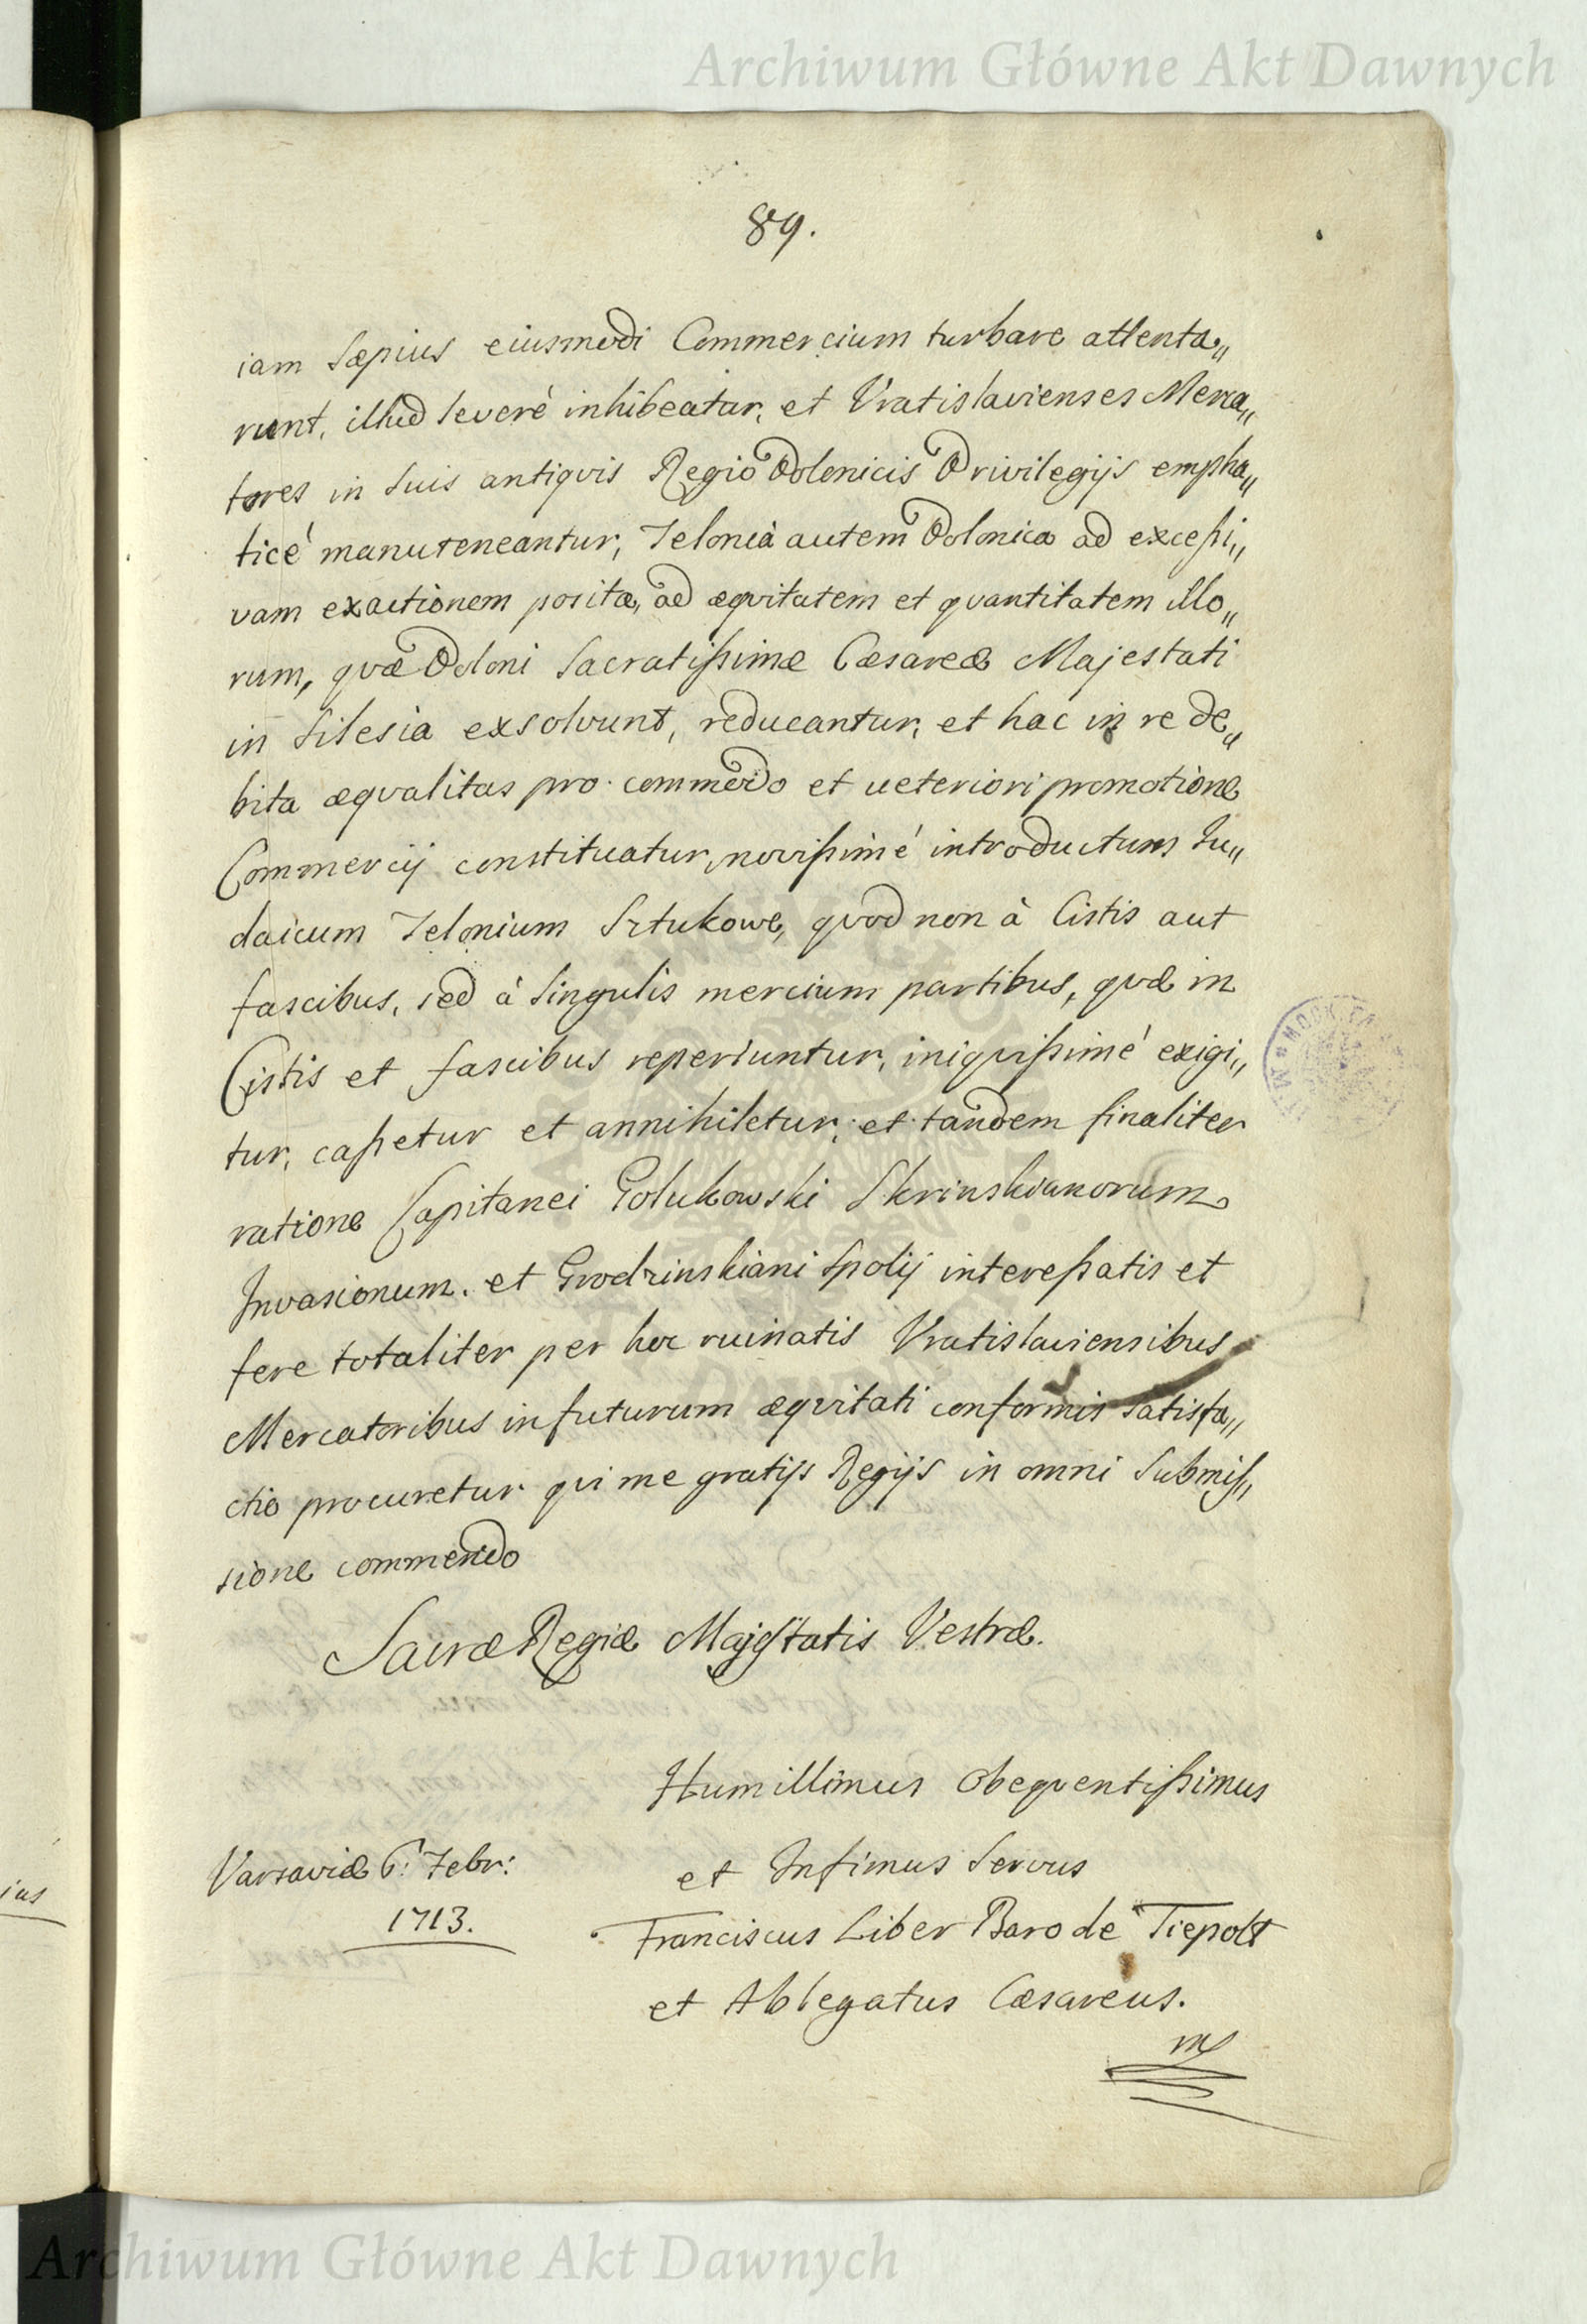 Archiwum Główne Akt Dawnych
89.
iam sæpius eiusmodi Commercium turbare attenta„
runt, illud severè inhibeatur, et Vratislavienses Merca„
tores in suis antiqvis Regio Polonicis Privilegijs empha„
ticè manuteneantur, Telonia autem Polonica ad excessi„
vam exactionem posita, ad æqvitatem et qvantitatem illo„
rum, qvæ Poloni Sacratissimæ Cæsareæ Majestati
in Silesia exsolvunt, reducantur, et hac in re de„
bita æqvalitas pro commodo et ueteriori promotione
Commercij constituatur, novissimé introductum Ju„
daicum Telonium Sztukowe, qvod non à Cistis aut
fascibus, sed à singulis mercium partibus, qvæ in
Cistis et fascibus reperiuntur, iniqvissimé exigi„
tur, cassetur et annihiletur, et tandem finaliter
ratione Capitanei Golukowski Skrinskianorum
Invasionum. et Grodzinskiani Spolij interessatis et
fere totaliter per hoc ruinatis Vratislaviensibus
Mercatoribus in futurum æqvitati conformis satisfa„
ctio procuretur qui me gratijs Regijs in omni Submis„
sione commendo
Sacræ Regiæ Majestatis Vestræ.
Humillimus Obeqventissimus
et Infimus Servus
Varsaviæ 6: Febr:
1713.
Franciscus Liber Baro de Tiepolt
et Ablegatus Cæsareus.
Archiwum Główne Akt Dawnych